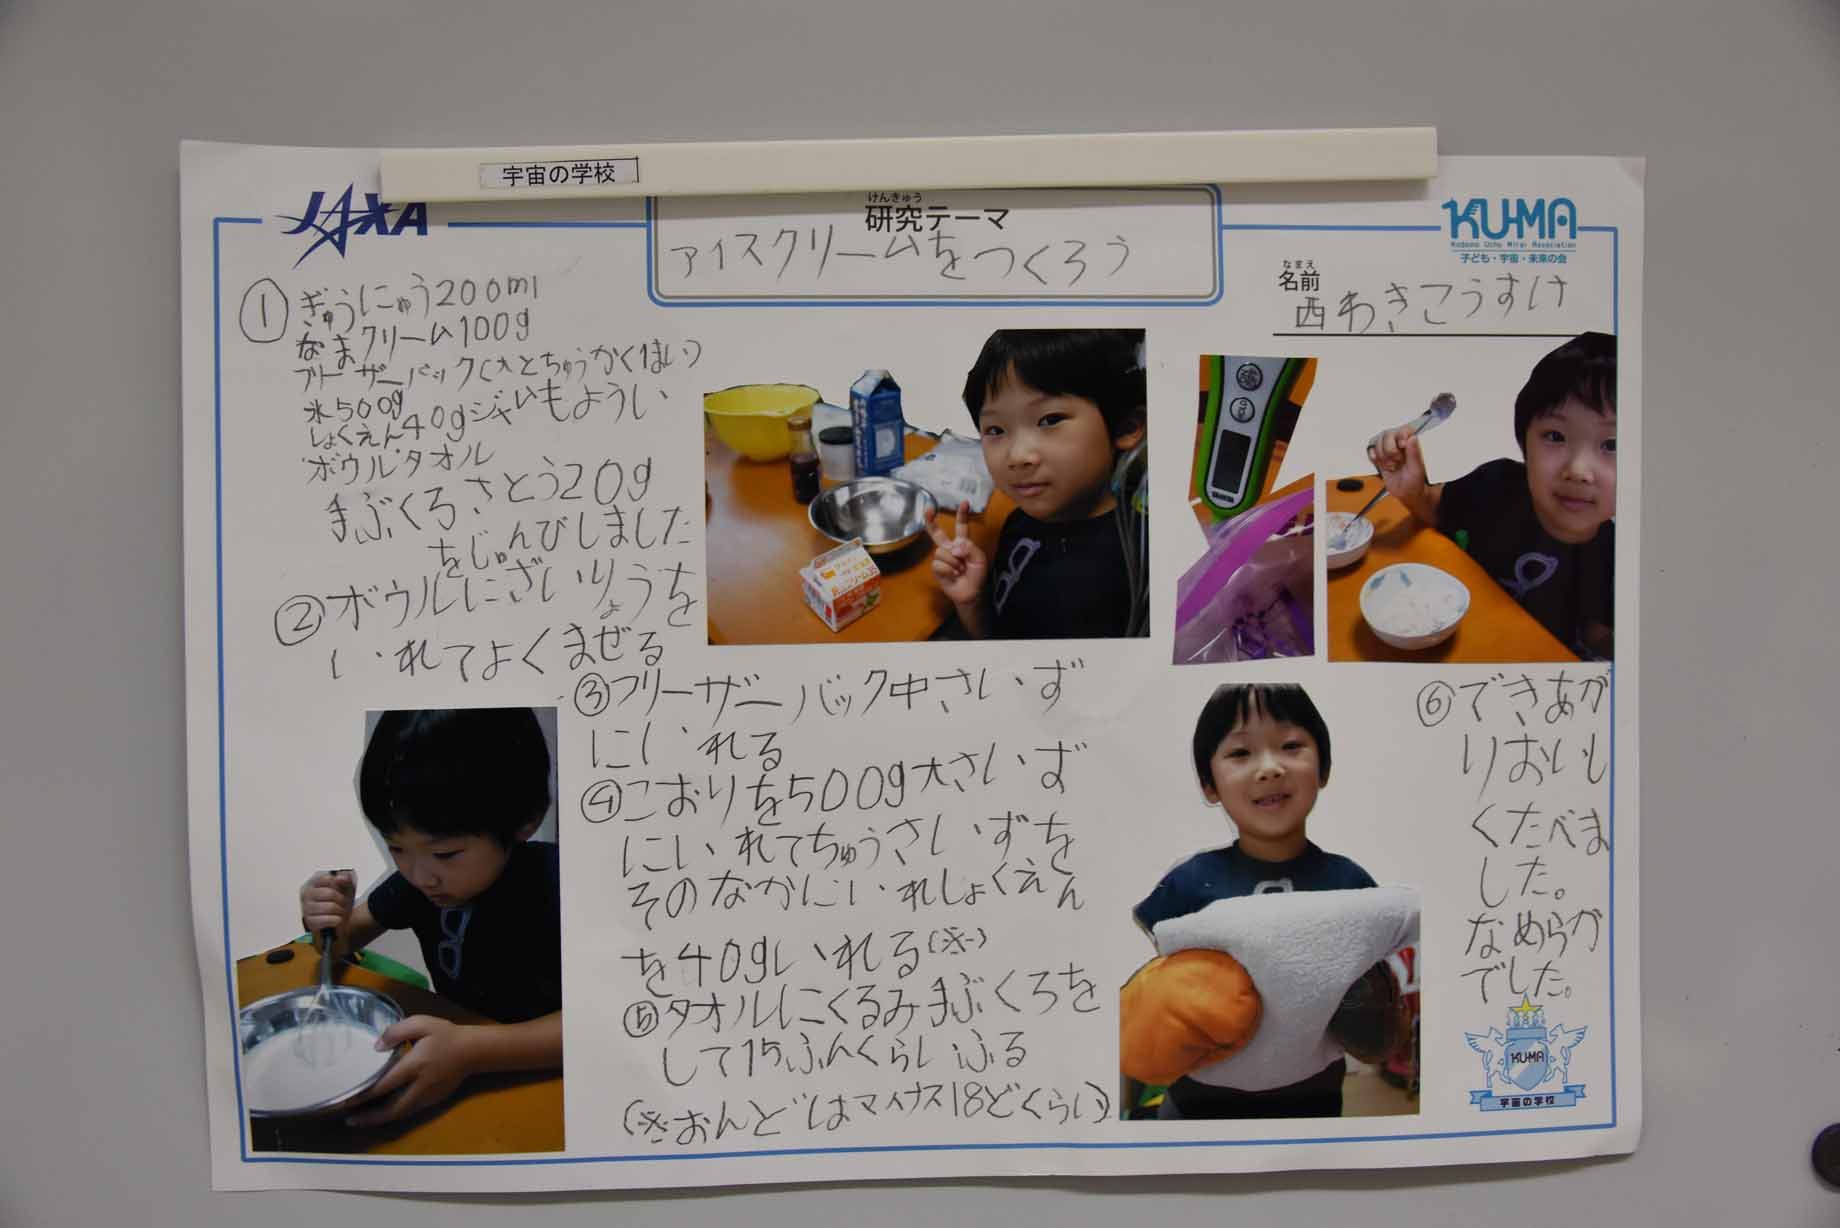 宇宙の学校
JAXA
けんきゅう
研究テーマ
アイスクリームをつくろう
KU-MA
Kodomo Uchu Mirai Association
子ども・宇宙・未来の会
なまえ
名前
西わきこうすけ
① ぎゅうにゅう200ml
なまクリーム100g
フリーザーバック(大とちゅうかく1まい)
氷500g
しょくえん40g
もようい
ボウルタオル
手ぶくろさとう20g
をじゅんびしました
②ボウルにざいりょうを
いれてよくまぜる
③フリーザーバック中さいず
にいれる
④こおりを500g大さいず
にいれてちゅうさいずを
そのなかにいれしょくえん
を40gいれる(※)
⑤タオルにくるみ手ぶくろを
して15ふんくらいふる
(※おんどはマイナス18どくらい)
⑥できあが
りおいし
くたべま
した。
なめらか
でした。
KU-MA
宇宙の学校